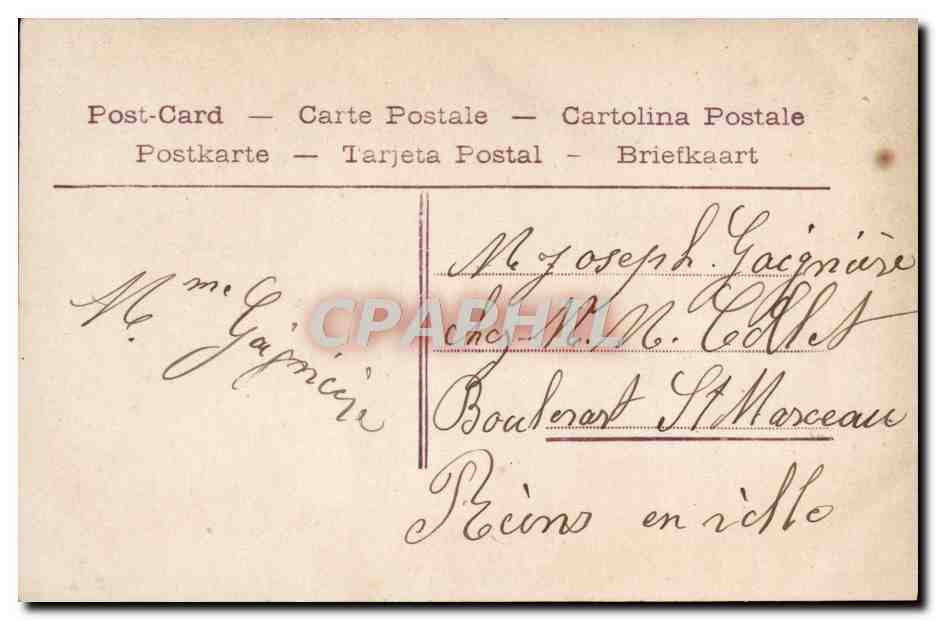 Post-Card — Carte Postale — Cartolina Postale
Postkarte — Tarjeta Postal – Briefkaart
Mme Gaignière
M Joseph. Gaignière
chez M. M. Collet
Boulevart St Marceau
Reims en ville
CPAPHIL